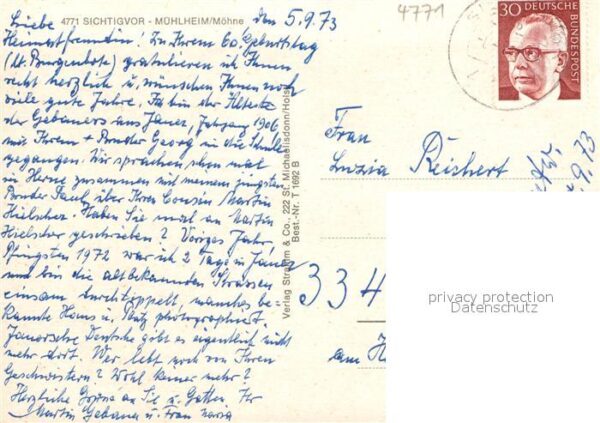 4771 SICHTIGVOR - MÜHLHEIM/Möhne
den 5.9.73
Liebe
Heimatfreundin! Zu Ihrem 60. Geburtstag
(lt. Burgenbote) gratulieren wir Ihnen
recht herzlich u. wünschen Ihnen noch
viele gute Jahre. Ich bin der Älteste
der Gebauers aus Jauer, Jahrgang 1906,
mit Ihrem + Bruder Georg in die Schule
gegangen. Wir sprachen schon mal
in Herne zusammen mit meinem jüngsten
Bruder Paul über Ihren Cousin Martin
Hielscher. Haben Sie mal an Martin
Hielscher geschrieben? Voriges Jahr,
Pfingsten 1972 war ich 2 Tage in Jauer
und bin die altbekannten Strassen
einsam durchtippelt, manches be-
kannte Haus u. Platz photographiert.
Jauersche Deutsche gibt es eigentlich nicht
mehr dort. Wer lebt noch von Ihren
Geschwistern? Wohl keiner mehr?
Herzliche Grüsse an Sie u. Gatten Ihr
Martin Gebauer u. Frau Maria
Verlag Stramm & Co., 222 St. Michaelisdonn/Holst.
Best.-Nr. T 1692 B
4771
30
DEUTSCHE BUNDESPOST
Frau
Luzia Reichert
5.9.73
334
am H
privacy protection
Datenschutz